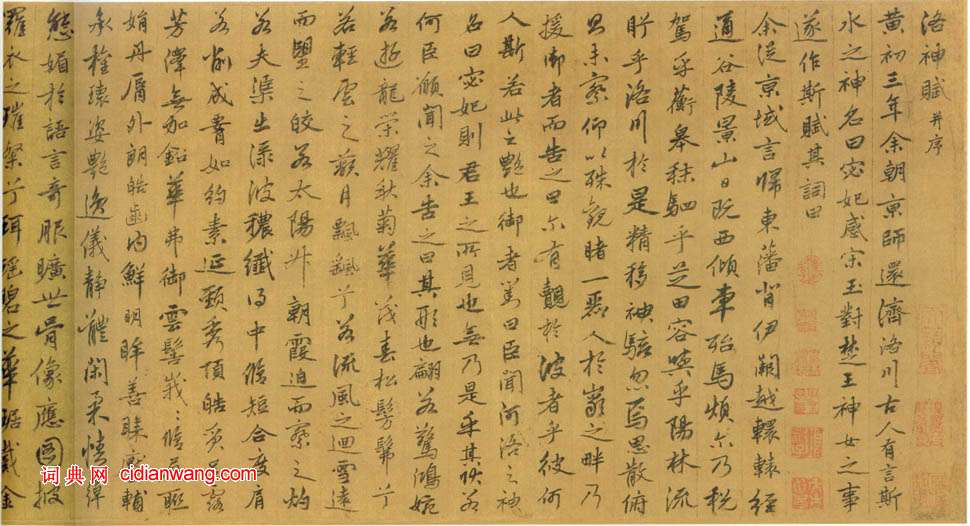 洛神賦 并序
黄初三年余朝京師還濟洛川古人有言斯
水之神名曰宓妃感宋玉對楚王神女之事
遂作斯賦其詞曰
余從京域言歸東藩背伊闕越轘轅經
通谷陵景山日既西傾車殆馬煩尒乃稅
駕乎蘅皋秣駟乎芝田容與乎陽林流
眄乎洛川於是精移神駭忽焉思散俯
未察仰以殊觀睹一麗人於巖之畔乃
援御者而告之曰尒有覿於彼者乎彼何
人斯若此之艷也御者對曰臣聞河洛之神
名曰宓妃則君王之所見也無乃是乎其狀若
何臣願聞之余告之曰其形也翩若驚鴻婉
若遊龍榮耀秋菊華茂春松髣髴兮
若輕雲之蔽月飄飄兮若流風之迴雪遠
而望之皎若太陽升朝霞迫而察之灼
若夫渠出淥波穠纖得中脩短合度肩
若削成腰如約素延頸秀項皓質呈露
芳澤無加鉛華弗御雲髻峩〻脩眉聯
娟丹脣外朗皓齒内鮮明眸善睞靨輔
承權瓌姿艷逸儀靜體閑柔情綽
態媚於語言奇服曠世骨像應圖披
羅衣之璀粲兮珥瑤碧之華琚戴金
词典网 cidianwang.com